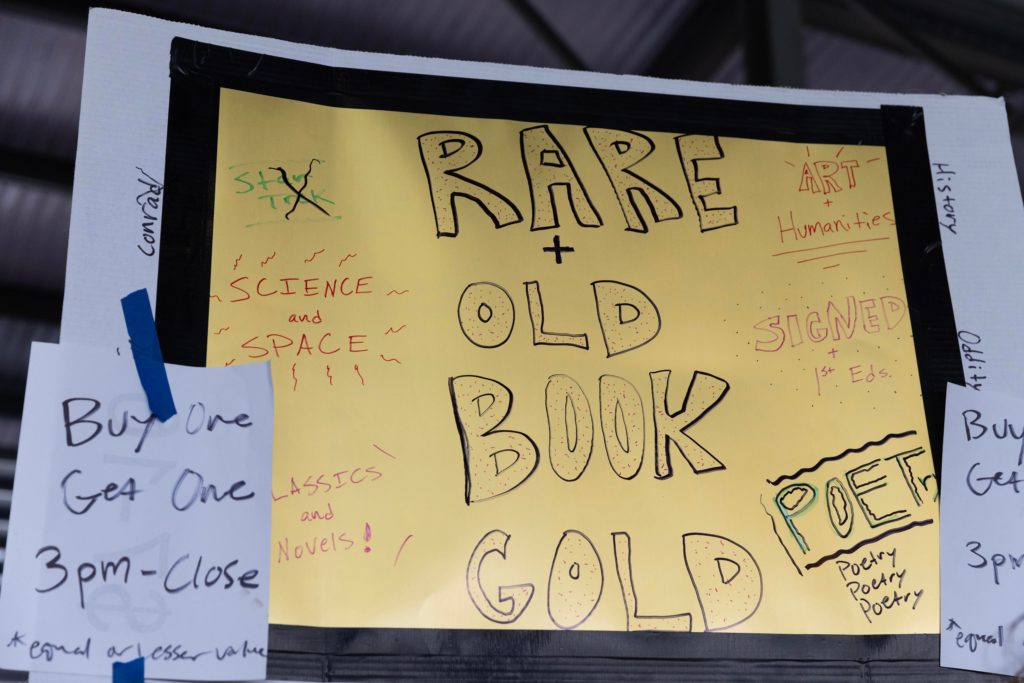 RARE
+
OLD
BOOK
GOLD
Star
Trek
SCIENCE
and
SPACE
LASSICS
and
Novels!
ART
+
Humanities
SIGNED
+
1st Eds.
POETRY
Poetry
Poetry
Poetry
conrad
History
Oddity
Buy One
Get One
3pm-Close
*equal or lesser value
Buy
Get
3pm
*equal